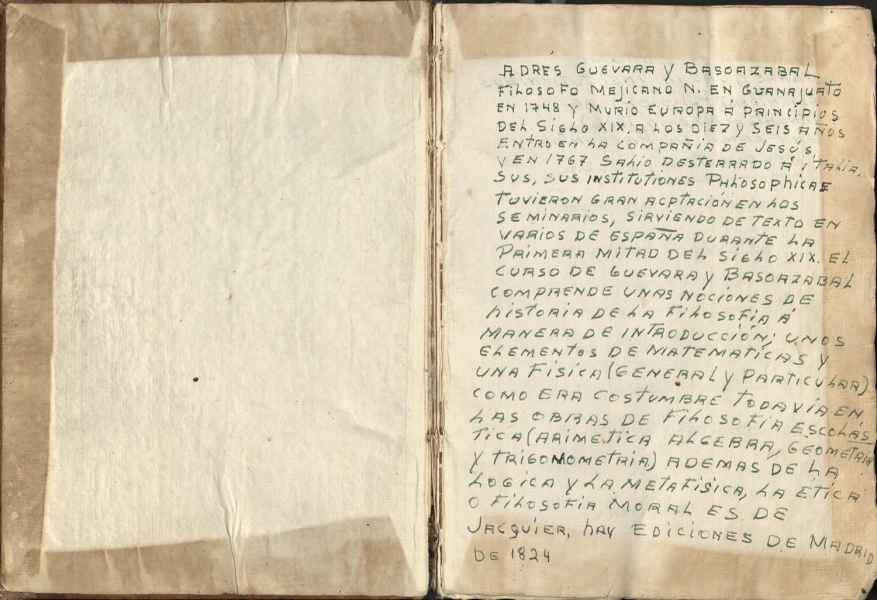 ADRES GUEVARA Y BASOAZABAL
FILOSOFO MEJICANO N. EN GUANAJUATO
EN 1748 Y MURIO EUROPA Á PRINCIPIOS
DEL SIGLO XIX. A LOS DIEZ Y SEIS AÑOS
ENTRO EN LA COMPAÑIA DE JESÚS,
Y EN 1767 SALIO DESTERRADO Á ITALIA.
SUS, SUS INSTITUTIONES PHLOSOPHICAE
TUVIERON GRAN ACPTACIÓN EN LOS
SEMINARIOS, SIRVIENDO DE TEXTO EN
VARIOS DE ESPAÑA DURANTE LA
PRIMERA MITAD DEL SIGLO XIX. EL
CURSO DE GUEVARA Y BASOAZABAL
COMPRENDE UNAS NOCIONES DE
HISTORIA DE LA FILOSOFÍA Á
MANERA DE INTRODUCCIÓN; UNOS
ELEMENTOS DE MATEMATÍCAS Y
UNA FÍSICA (GENERAL Y PARTICULAR)
COMO ERA COSTUMBRE TODAVÍA EN
LAS OBRAS DE FILOSOFÍA ESCOLÁS
TICA (ARIMETICA ALGEBRA, GEOMETRIA
Y TRIGONOMETRIA) ADEMAS DE LA
LOGICA Y LA METAFÍSICA, LA ETICA
O FILOSOFÍA MORAL ES DE
JACQUIER, HAY EDICIONES DE MADRID
DE 1824